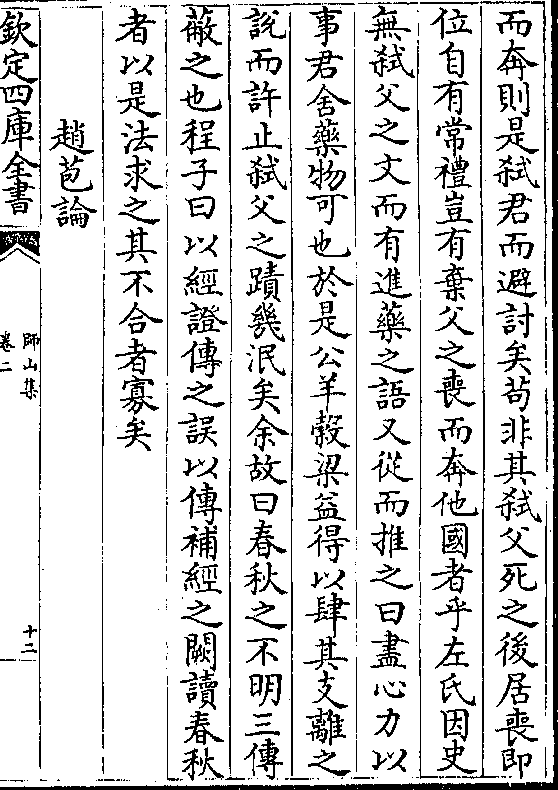 而奔則是弑君而避討矣茍非其弑父死之後居喪即
位自有常禮豈有棄父之喪而奔他國者乎左氏因史
無弑父之文而有進藥之語又從而推之曰盡心力以
事君舍藥物可也於是公羊穀梁益得以肆其支離之
說而許止弑父之蹟幾泯矣余故曰春秋之不明三傳
蔽之也程子曰以經證傳之誤以傳補經之闕讀春秋
者以是法求之其不合者寡矣
趙苞論
欽定四庫全書
師山集
卷二
十二